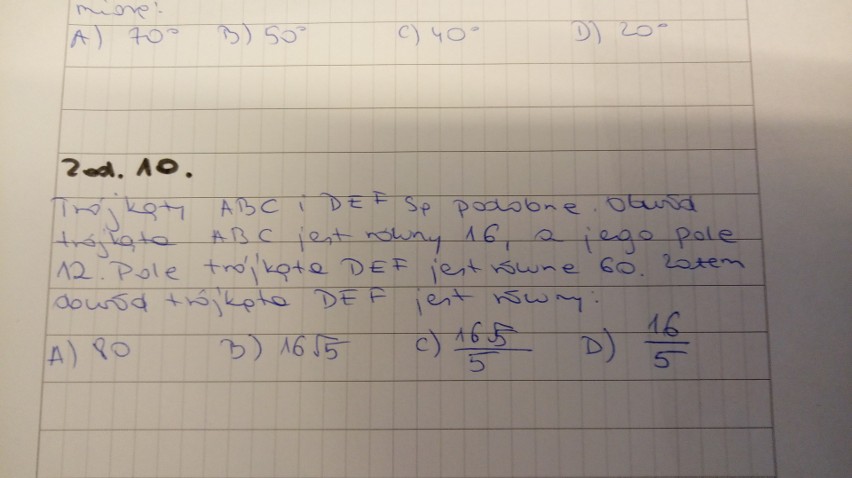 miarę:
A) 70° B) 50° C) 40° D) 20°
Zad. 10.
Trójkąty ABC i DEF są podobne. Obwód
trójkąta ABC jest równy 16, a jego pole
12. Pole trójkąta DEF jest równe 60. Zatem
obwód trójkąta DEF jest równy:
A) 80 B) 16√5 C) 16√5/5 D) 16/5